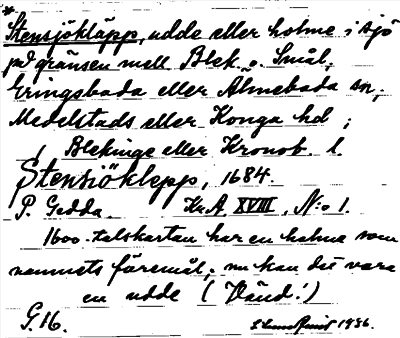 * Stensjökläpp, udde eller holme i sjö
på gränsen mell Blek. o. Smål;
Eringsboda eller Älmeboda sn;
Medelstads eller Konga hd;
Blekinge eller Kronob. l.
Stensiöklepp, 1684.
P. Gedda. Kr.A. XVIII, N:o 1.
1600-talskartan har en holme som
namnets föremål; nu kan det vara
en udde (Vänd!)
G. 16. 1936.